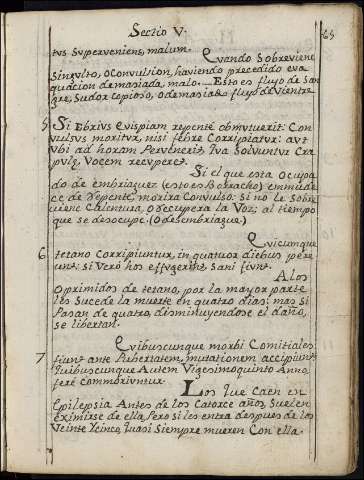 Sectio V.
65
tus Superveniens, malum.
Quando Sobreviene
Singulto, o Convulsion, haviendo precedido eva
quacion demasiada, malo. Esto es flujo de San
gre, Sudor Copioso, o demasiado flujo de Vientre.
5 Si Ebrius Quispiam repente obmutuerit: Con
vulsus moritur, nisi febre Corripiatur: aut
Ubi ad horam Pervenerit, Qua Solvuntur Cra
pulæ, Vocem recuperet.
Si el que esta Ocupa
do de embriaguez (esto es Borracho) emmude
ce de repente, morira Convulso: Si no le Sobre
viene Calentura, O recupera la Voz, al tiempo
que se desocupe. (O desembriague.)
Quicunque
6 tetano Corripiuntur, in quatuor diebus pere
unt: si Vero hos effugerint Sani fiunt.
A los
Oprimidos de tetano, por la mayor parte
les Sucede la muerte en quatro dias: mas si
Pasan de quatro, disminuyendose el daño,
se libertan.
Quibuscunque morbi Comitiales
7 fiunt ante Pubertatem, mutationem accipiunt
Quibuscunque Autem Vigesimoquinto Anno,
fere Commoriuntur.
Los que Caen en
Epilepsia Antes de los Catorce años, Suelen
eximirse de ella, Pero si les entra despues de los
Veinte y cinco, Quasi Siempre mueren Con ella.